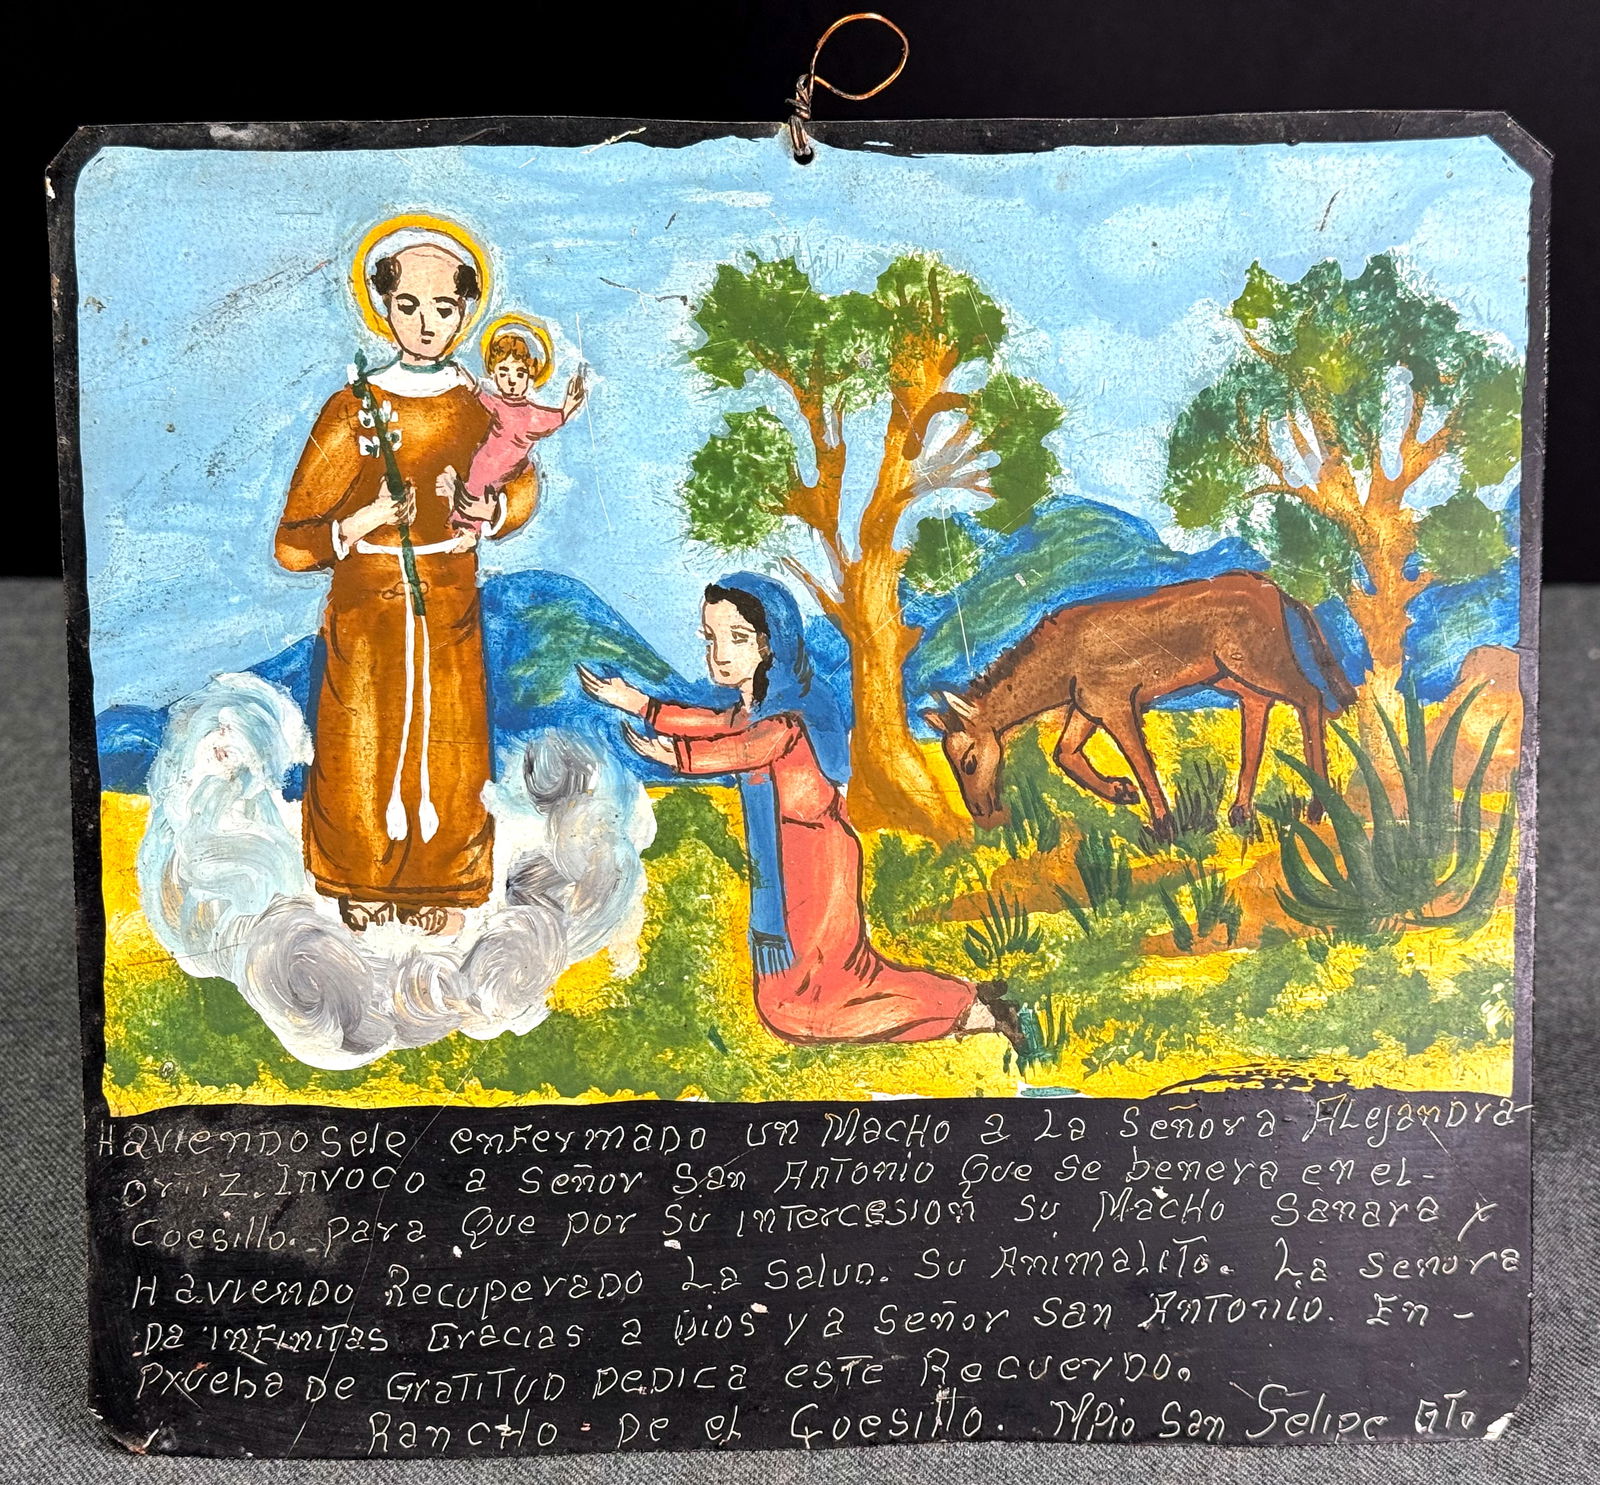 HavienDoSele enFermaDo un MacHo a La Señora ALejanDra-
Ortiz. Invoco a Señor San AnTonio Que Se benera en el-
Coesillo. para Que por Su inTercesion Su MacHo Sanara y
HavienDo RecuperaDo La SaluD. Su AnimaLiTo. La Senora
Da inFiniTas Gracias a Dios y a Señor San AnTonio. En-
Prueba De GraTiTuD DeDica esTe RecuerDo.
RancHo De el Coesillo. MPio San Felipe GTo